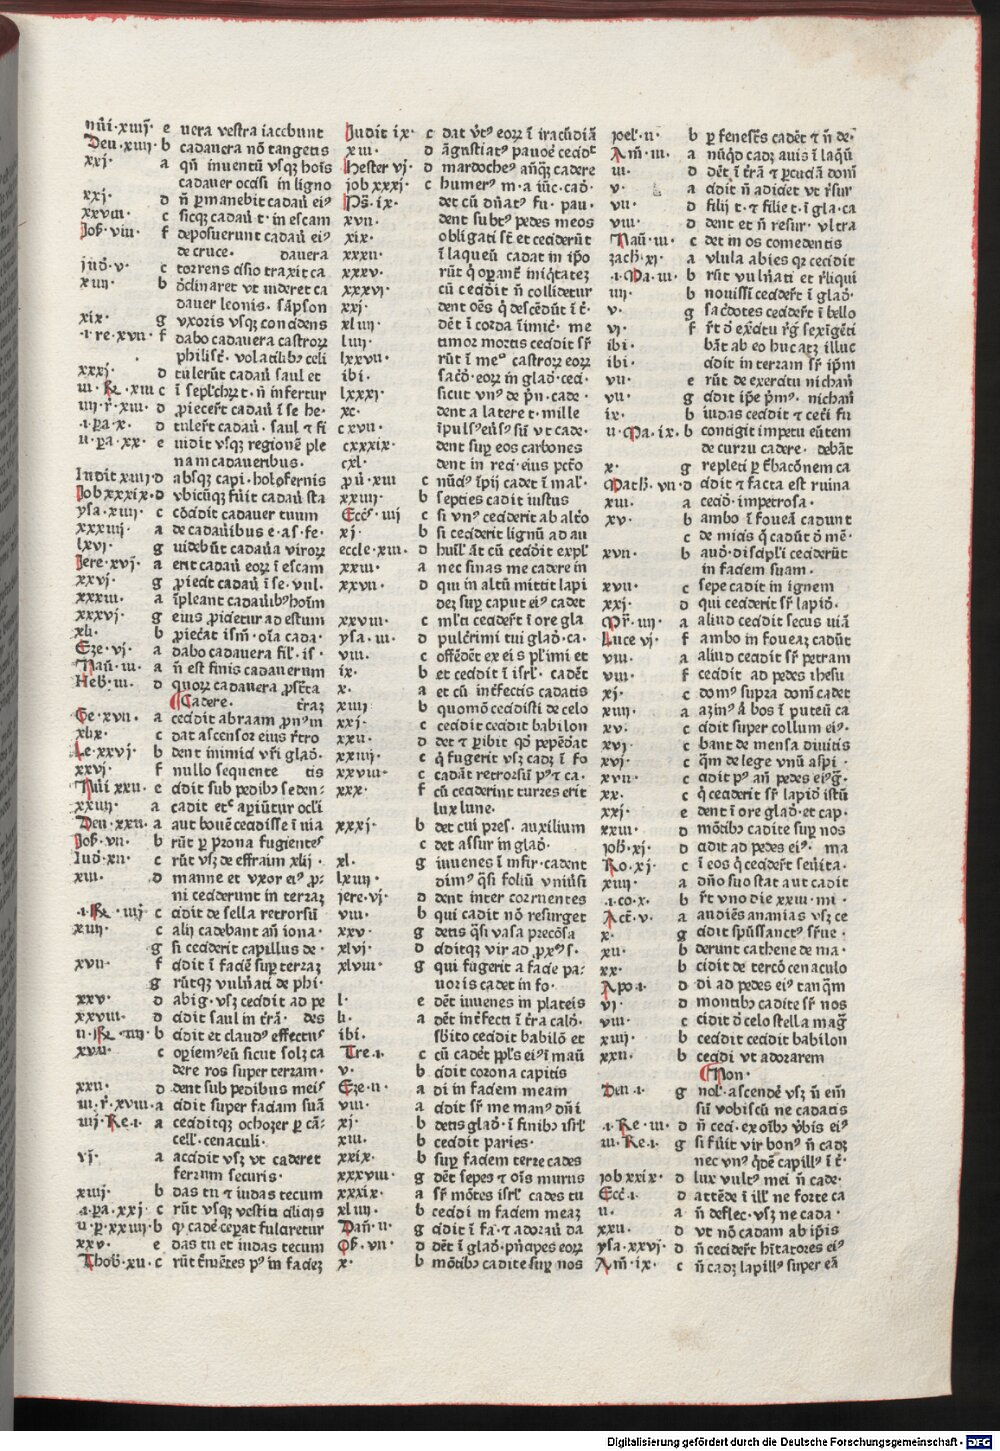 nūi·xiiij· e uera vestra iacebunt
Deu·xiiij· b cadauera nō tangetis
xxj· a qn̄ inuentū vsqꝫ hoīs
cadauer occisi in ligno
xxj· d n̄ ꝑmanebit cadaū eiꝰ
xxviii· c sicqꝫ cadaū t· in escam
Joſ·viii· f deposuerunt cadaū eiꝰ
de cruce· dauera
jud·v· c torrens cisio traxit ca
xiiij· b declinaret vt uideret ca
dauer leonis· sāpson
xix· g vxoris vsqꝫ concidens
·i·re·xvii· f dabo cadauera castroꝝ
philist̄· volatilibꝫ celi
xxxj· d tulerūt cadaū saul et
iii·R·xiii c ī sepl̄chꝛo t· n̄ infertur
iiij·r̄·xiii· d ꝓiecer̄t cadaū ī se he·
·i·pa·x· d tuler̄t cadaū· saul ⁊ fi
ii·pa·xx· e uidit vsqꝫ regionē ple
nam cadaueribus·
Iudit xiiij d absqꝫ capi· holofernis
Job xxxix·d vbicūqꝫ fūit cadaū sta
ysa·xiiij· c cōcidit cadauer tuum
xxxiiij· a de cadaūibus e·as·fe·
lxvj· g uidebūt cadaūa viroꝝ
Jere·xvj· a erit cadaū eoꝝ ī escam
xxvj· g ꝓiecit cadaū ī se·vul·
xxxiii· a īpleant cadaūibꝰ hoīm
xxxvj· g eius ꝓicietur ad estum
xli· b ꝓiecāt ism̄·oīa cada·
Eze·vj· a dabo cadauera fil·is·
Naū·iii· a n̄ est finis cadauerum
Heb·iii· d quoꝝ cadauera ꝓstꝛta
Cadere· t̄raꝫ
Ge·xvii· a cecidit abraam ꝓnꝰ in
xlix· c dat ascensoꝛ eius r̄tro
Le·xxvj· b dent inimici vr̄i glad·
xxvj· f nullo sequente tis
Nūi xxii· e cidit sub pedibꝫ seden·
xxiiij· a cadit etᶜ apiūtur ocl̄i
Deu·xxii· a aut bouē cecidisse ī uia
Joſ·vii· b rūt ꝑ prona fugientes
Iud·xii· c rūt vsqꝫ de effraim xlij·
xiii· d manne et vxor eiꝰ ꝓ·
ni ceciderunt in terraꝫ
·i·R·iiij c cidit de sella retrorsū
xiiij· c alij cadebant an̄ iona·
g si ceciderit capillus de·
xvii· f cidit ī faciē suꝑ terraꝫ
g rūtqꝫ vuln̄ati de phi·
xxv· d abig·vsꝫ cecidit ad pe
xxviii· d cidit saul in t̄rā· des
ii·R·iiij· b cidit et claudꝰ effectus
xvii· c opīemꝰ eū sicut solꝫ ca
dere ros super terram·
xxii· d dent sub pedibus meis
iii·r̄·xviii·a cidit super faciam suā
iiij·Re·i· a ceciditqꝫ ochoꝫeꝛ ꝑ cā·
cell·cenaculi·
vj· a accidit vsꝫ vt caderet
ferrum securis·
xiiij· b das tu ⁊ iudas tecum
·i·pa·xxj· c rūt vsqꝫ vestiti cilicijs
ii·p·xxiiij·b qꝫ cadē ceꝑat fulcietur
xxv· e das tu et iudas tecum
Thob·xii· c rūt t̄mētes pꝰ in facieꝫ
Judit ix· c dat vꝰtꝰ eoꝝ ī iracūdiā
xiii· d āgustiatꝰ pauoe cecidᵗ
Hester vj· d mardocheꝰ an̄qꝫ cadere
job xxxj· c humerꝰ m·a iūc·cad·
Ps·ix· det cū dn̄atꝰ fu·pau·
xvii· dent subtꝰ pedes meos
xix· obligati st̄ et ceciderūt
xxxii· ī laqueū cadat in ip̄o
xxxv· rūt q̄ oꝑant̄ iniq̄tateꝫ
xxxvj· cū cecid̄it n̄ collidetur
xxj· dent oēs q̄ descēdūt ī t̄·
xliiij· dēt ī corda īmic̄· me
liiij· timor mortis cecidit sr̄
lxxvii· rūt ī meᵒ castroꝝ eoꝝ
ibi· sac̄d·eoꝝ in glad·ceci·
lxxxj· sicut vnꝰ de p̄n·cade·
xc· dent a latere t·mille
c xvii· īpulsꝰ eūsꝰ sū vt cade·
cxxxix· dent suꝑ eos carbones
cxl· dent in reci·eius pct̄o
pū·xiii c nūcꝰ īpij cadet ī mal·
xxiiij· b septies cadit iustus
Ecc̄s·iiij c si vnꝰ ceciderit ab alt̄o
xj· b si ceciderit lignū ad au
eccle·xiii· d huīl·āt cū cecid̄it expl̄
xxiii· a nec sinas me cadere in
xxvii· d qui in altū mittit lapi
deꝫ suꝑ caput eiꝰ cadet
xxviii· c ml̄ti cecider̄t ī ore gla
ysa·iii· d pulcr̄imi tui glad·ca·
viii· c offēdēt ex eis pl̄imi et
ix· b et cecidit ī isrl̄·cadēt
x· a et cū int̄fectis cadatis
xiiij b quomō cecidisti de celo
xxj· c cecidit cecidit babilon
xxii· d det ⁊ ꝑibit qd pepēdat
xxiiij· c q̄ fugerit vsꝫ cadꝫ ī fo
xxviii· c cadāt retrorsū pꝰ ⁊ ca·
xxx· f cū ceciderint turres erit
lux lune·
xxxj· b det cui pres·auxilium
c det assur in glad·
xl· g iuuenes ī infir·cadent
lxiiij· dimꝰ q̄si foliū vniūsi
jere·vj· d dent inter corruentes
viii· b qui cadit nō resurget
xxv· g detis q̄si vasa preciosa
xlvj· d ciditqꝫ vir ad ꝓxꝰ s·
xlviii· g qui fugerit a facie pa·
uoris cadet in fo·
l· e dēt iuuenes in plateis
li· a dēt int̄fecti ī t̄ra cald·
ibi· sbito cecidit babilō et
Tre·i· c cū cadēt ppl̄s eiꝰ ī maū
v· b cidit corona capitis
Eze·ii· a di in faciem meam
viii· a cidit sr̄ me manꝰ dn̄i
xj· b detis glad·ī finibꝫ isrl̄
xiii· b cecidit paries·
xxix· b suꝑ faciem terre cades
xxxviii· g dēt sepes ⁊ oīs murus
xxxix· a sr̄ mōtes isrl̄ cades tu
xliiij· b cecidi in faciem meaꝫ
Dan̄·ii· g cidit ī fa·⁊ adoraū da
Os·vii· d dēt ī glad·pn̄cipes eoꝝ
x· b mōtibꝫ cadite suꝑ nos
joel·ii· b ꝑ fenest̄s cadēt ⁊ n̄ de·
Am̄·iii· a nūq̄d cadꝫ auis ī laq̄ū
iii· d dēt ī t̄rā ⁊ ꝑcuciā dom̄
v· a cidit n̄ adiciet vt r̄sur
vii· d filij t·⁊ filie t·ī gla·ca
viii· d dent et n̄ resur·vltra
Naū·iii· c det in os comedentis
zach·xj· a vlula abies qꝛ cecidit
·i·Ma·iii· b rūt vuln̄ati et r̄liqui
iiij· b nouissī cecider̄t ī glad·
v· g sac̄dotes cecider̄t ī bello
vj· f r̄t d exercitu rḡ sexīgēti
ibi· bāt ab eo huc atqꝫ illuc
ibi· cidit in terram sr̄ ip̄m
vii· e rūt de exercitu nichan̄
vii· g cidit ip̄e p̄mꝰ·nichan̄
ix· b iudas cecidit ⁊ cet̄i fu
ii·Ma·ix· b contigit impetu eūtem
de curru cadere·debāt
x· g repleti ꝑ t̄bacōnem ca
Math·vii·d cidit ⁊ facta est ruina
xiii· a cecid·impetrosa·
xv· b ambo ī foueā cadunt
c de micis q̄ cadūt d mē·
xvii· b aud·discipl̄i ceciderūt
in faciem suam·
xvii· c sepe cadit in ignem
xxj· d qui ceciderit sr̄ lapid·
Mr̄·iiij· a aliud cecidit secus uiā
Luce vj· f ambo in foueaꝫ cadūt
viii· a aliud cecidit sr̄ petram
viii· f cecidit ad pedes ihesu
xj· c domꝰ supra domū cadet
xiiij· a azinꝰ ā bos ī puteū ca
xv· c cidit super collum eiꝰ·
xvj· c bant de mensa diuitis
xvj· c q̄m de lege vnū aspi·
xvii· c cidit pꝰ an̄ pedes eiꝰ g̅·
xx· c q̄ ceciderit sr̄ lapid istū
xxj· e dent ī ore glad·et cap·
xxiii· d mōtibꝫ cadite suꝑ nos
joh·xj· d cidit ad pedes eiꝰ· ma
Ro·xj· c ī eos q̄ cecider̄t seūita·
xiiij· a dn̄o suo stat aut cadit
·i·co·x· b r̄t vno die xxiii·mi·
Act̄·v· a audiēs ananias vsꝫ ce
x· g cidit spūssanctꝰ sr̄ue·
xii· b derunt cathene de ma·
xx· b cidit de terc̄o cenaculo
Apo·i· d di ad pedes eiꝰ tanq̄m
vj· d montibꝫ cadite sr̄ nos
viii· c cidit d celo stella mag̅
xiiij· b cecidit cecidit babilon
xxii· b cecidi vt adorarem
Non·
Deu·i· g nol·ascende vsꝫ n̄ em̄
sū vobiscū ne cadatis
·i·Re·iii· d n̄ ceci·ex oībꝫ vbis eiꝰ
iii·Re·i· g si fūit vir bonꝰ n̄ cadꝫ
nec vnꝰ q̄dē capillꝰ ī t̄·
job xxix· d lux vultꝰ mei n̄ cade·
Ecc̄·i· d attēde ī ill·ne forte ca
ii· a n̄ deflec·vsꝫ ne cada·
xxii· d vt nō cadam ab ip̄is
ysa·xxvj· d n̄ cecider̄t hītatores eiꝰ
Am̄·ix· c n̄ cadꝫ lapillꝰ super eā
Digitalisierung gefördert durch die Deutsche Forschungsgemeinschaft - DFG